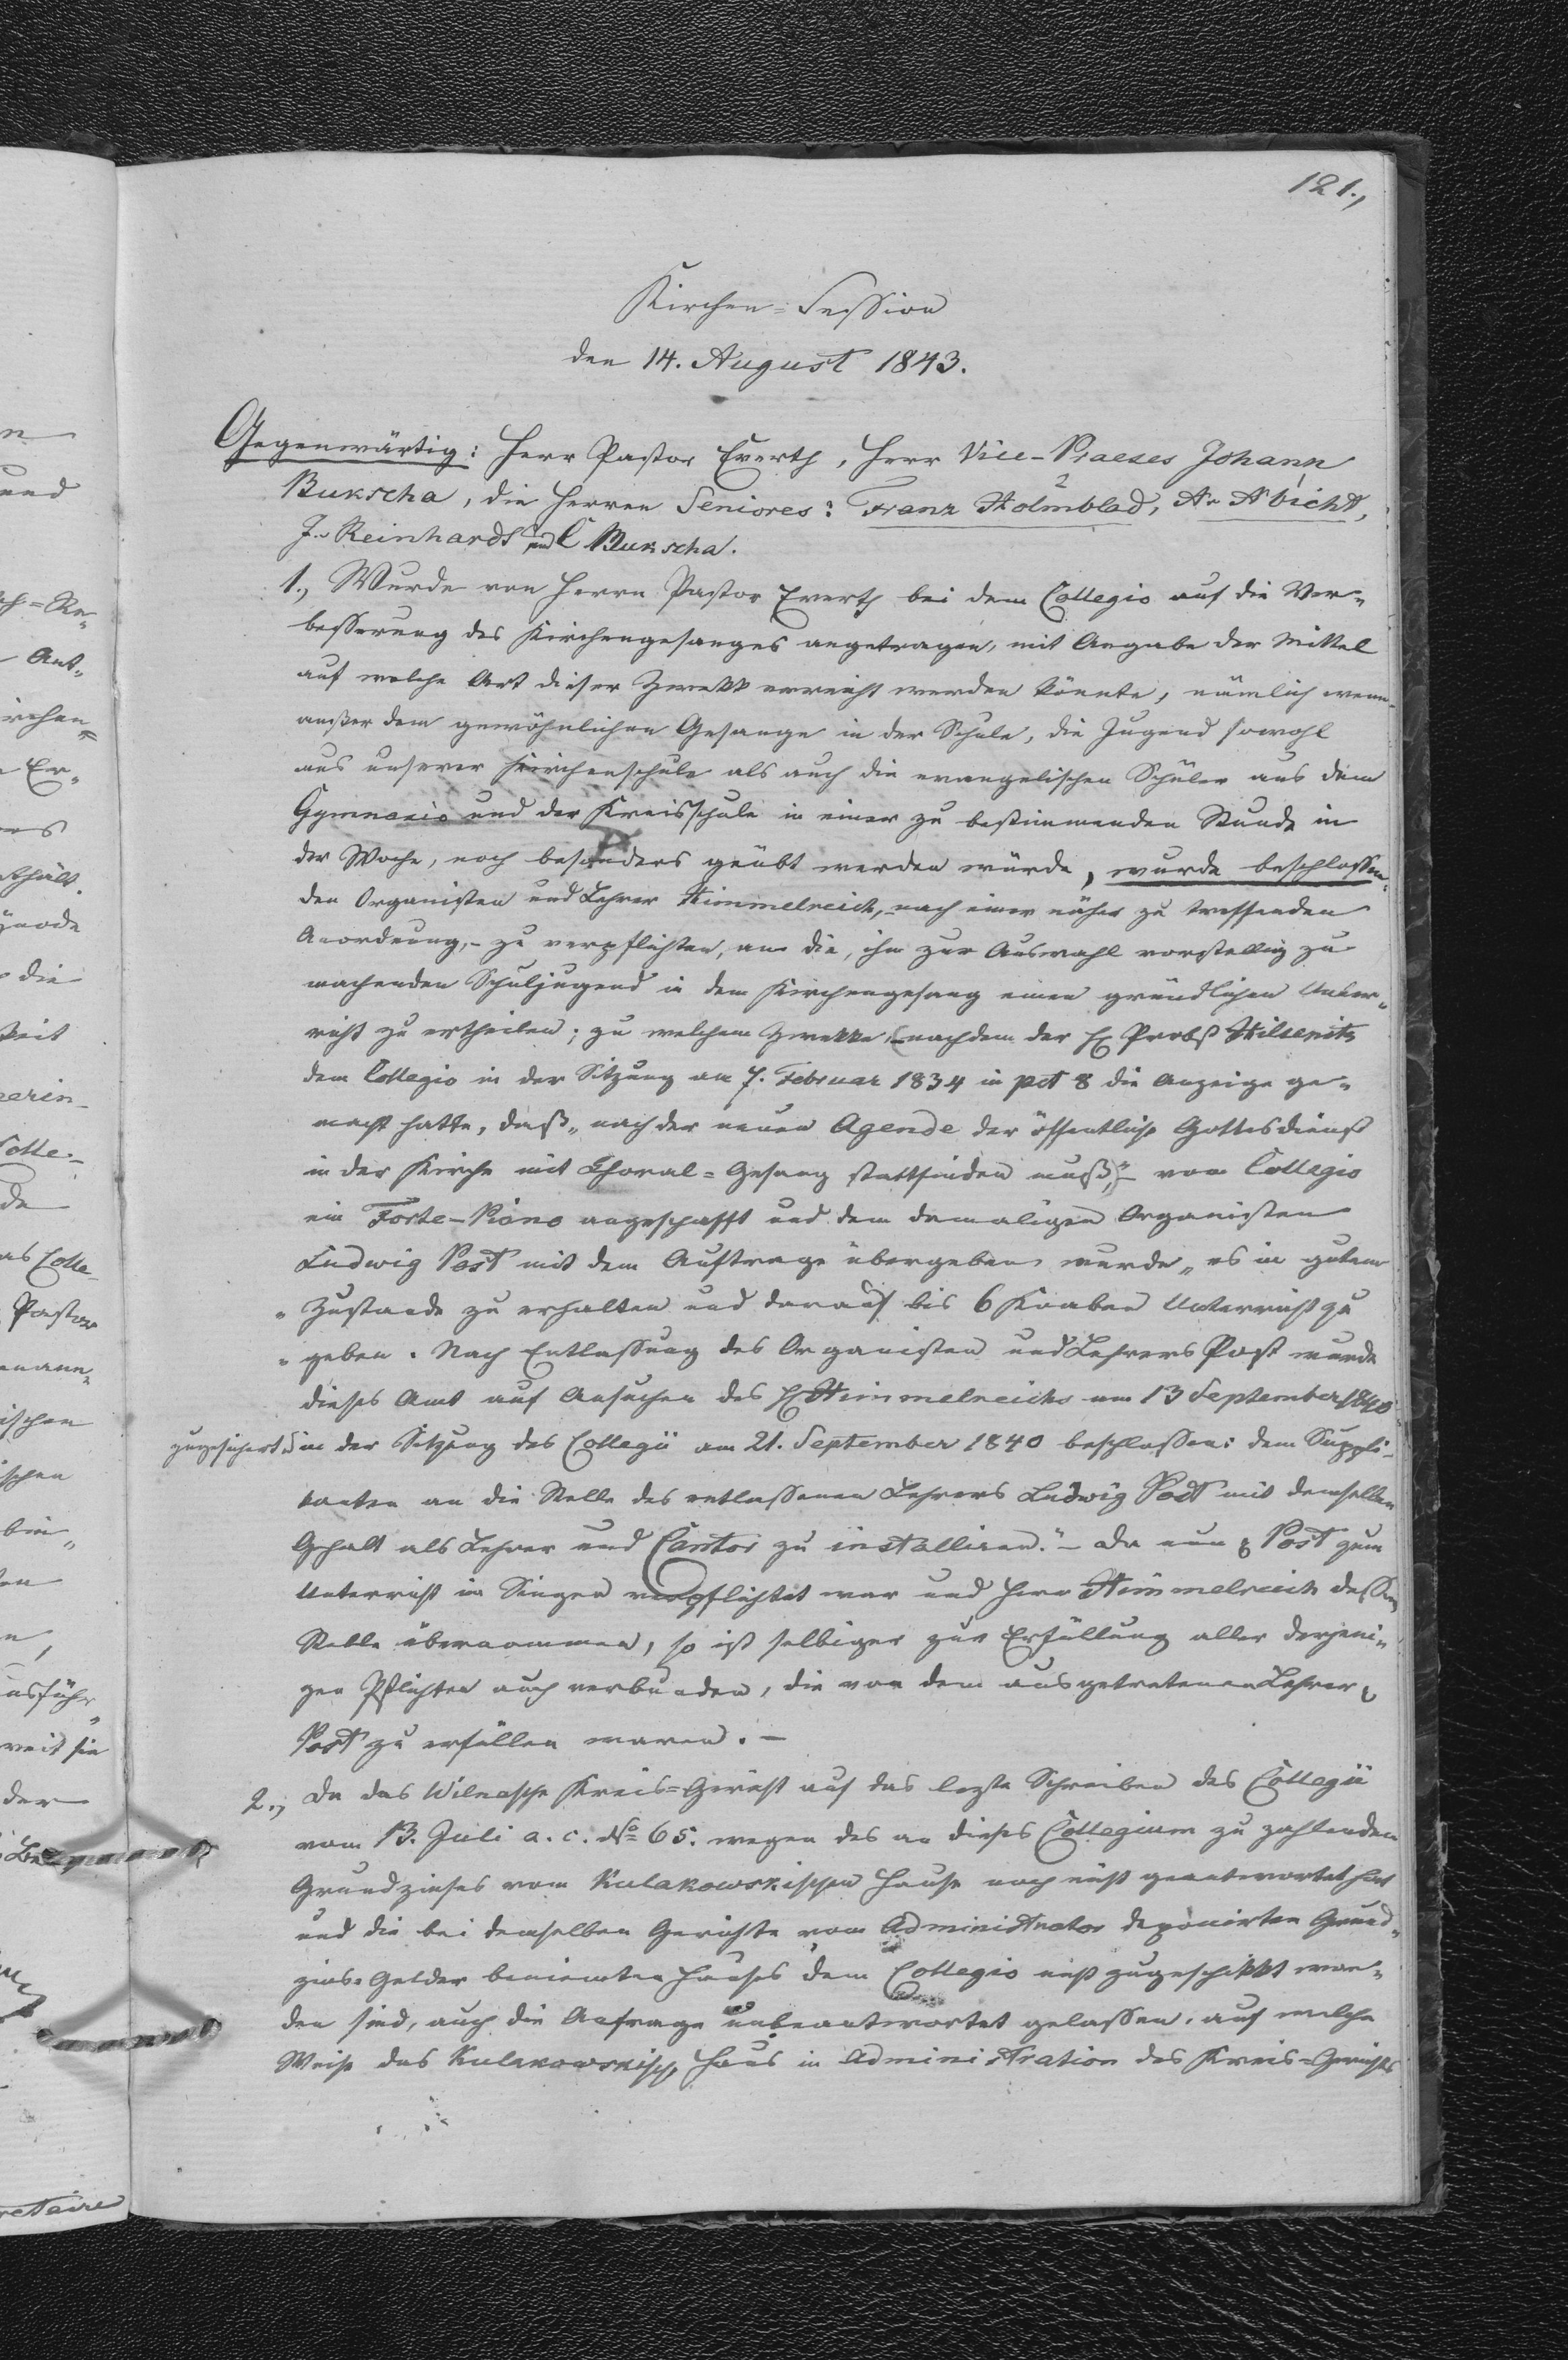 121.,
Kirchen-Session
den 14. August 1843.
Gegenwärtig: Herr Pastor Everth, Herr Vice-Praeses Johann
Bukscha, die Herren Seniores: Franz Holmblad, A. Abicht,
J. Reinhardt und C Bukscha.
1., Wurde von Herrn Pastor Everth bei dem Collegio auf die Ver-
besserung des Kirchengesanges angetragen, mit Angabe der Mittel
auf welche Art dieser Zwekk erreicht werden könnte, nämlich wenn
außer dem gewöhnlichen Gesange in der Schule, die Jugend sowohl
aus unserer Kirchenschule als auch die evangelischen Schüler aus dem
Gymnasio und der Kreisschule in einer zu bestimmenden Stunde in
der Woche, noch besonders geübt werden würde, wurde beschlossen:
den Organisten und Lehrer Himmelreich, nach einer näher zu treffenden
Anordnung, - zu verpflichten, an die, ihm zur Auswahl vorstellig zu
machenden Schuljugend in dem Kirchengesang einen gründlichen Unter-
richt zu ertheilen; zu welchem Zwekke, (nachdem der H Probst Hilsenitz
dem Collegio in der Sitzung am 7. Februar 1834 in pct 8 die Anzeige ge-
macht hatte, daß „nach der neuen Agende der öffentliche Gottesdienst
in der Kirche mit Choral-Gesang stattfinden muß,") - vom Collegio
ein Forte-Piano angeschafft und dem damaligen Organisten
Ludwig Post mit dem Auftrage übergeben wurde „es in gutem
„Zustande zu erhalten und darauf bis 6 Knaben Unterricht zu
„geben. Nach Entlassung des Organisten und Lehrers Post wurde
dieses Amt auf Ansuchen des H Himmelreichs am 13 September 1840
zugesichert u in der Sitzung des Collegii am 21. September 1840 beschlossen: dem Suppli-
kanten an die Stelle des entlassenen Lehrers Ludwig Post mit demselben
Gehalt als Lehrer und Cantor zu installiren." - Da nun H Post zum
Unterricht im Singen verpflichtet war und Herr Himmelreich dessen
Stelle übernommen, so ist selbiger zur Erfüllung aller derjeni-
gen Pflichten auch verbunden, die von dem ausgetretenen Lehrer
Post zu erfüllen waren. -
2., Da das Wilnasche Kreis-Gericht auf das lezte Schreiben des Collegii
vom 13. Juli a. c. No 65. wegen des an dieses Collegium zu zahlenden
Grundzinses vom Kulakowskischen Hause noch nicht geantwortet hat
und die bei demselben Gerichte vom Administrator deponirten Grund-
zins-Gelder beniemten Hauses dem Collegio nicht zugeschikkt wor-
den sind, auch die Anfrage unbeantwortet gelassen, auf welche
Weise das Kulakowskisch, Haus in Administration des Kreis-Gerichts